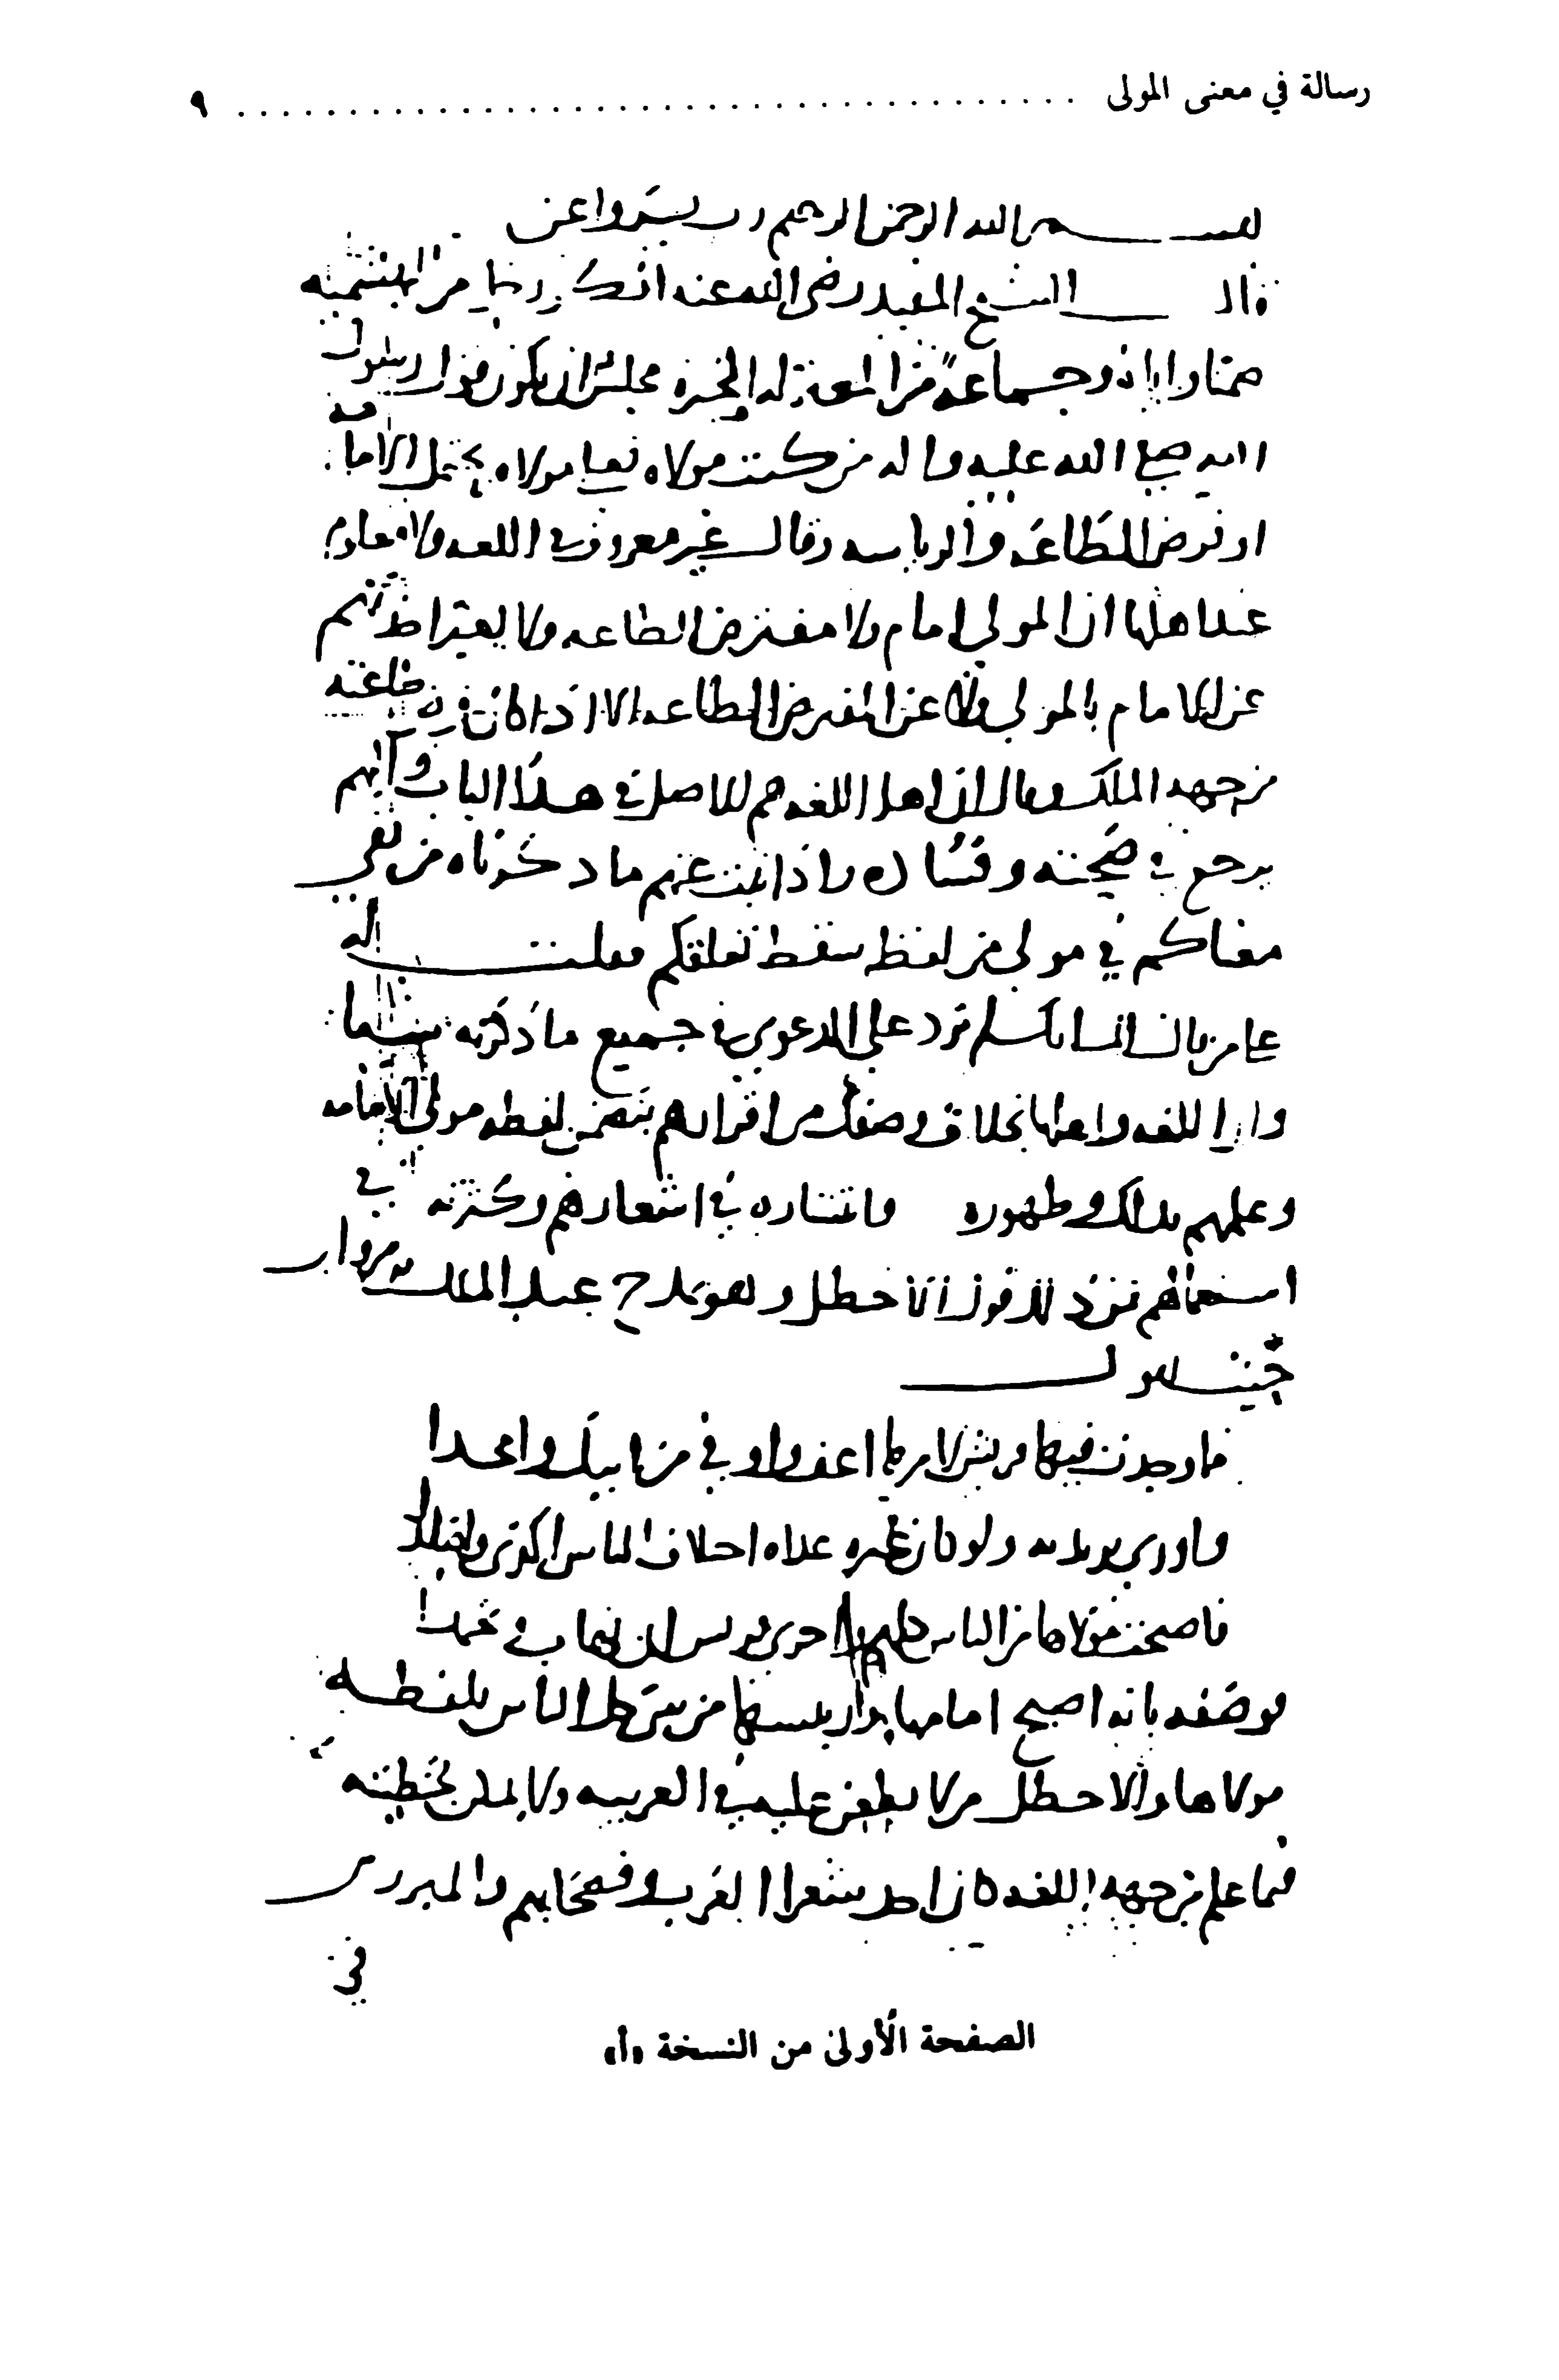 رسالة في معنى المولى ........................................ ٩
بسم الله الرحمن الرحيم رب يسر واعن
قال الشيخ المفيد رضي الله عنه انكر من البهشمية
وجماعة من المعتزلة مجلس ان يكون قول رسول
الله صلى الله عليه واله من كنت مولاه فعلي مولاه يحتمل الامامة
او فرض الطاعة والرياسة وقال غير معروف في اللغة ولا معلوم
عند اهلها ان المولى امام ولا مفترض الطاعة ولا يعبر احد منهم
عن الامام بالمولى ولا عن المفترض الطاعة الا اذا كان فرض طاعته
من جهة الملك وقال ان اهل اللغة هم الاصل في هذا الباب واليهم
يرجع في صحته وفساده واذا ثبت عنهم ما ذكرناه من نفي
معناكم في مولى من لفظه سقط تعلقكم فقلت له
ما في جميع ما ذكرته
اللغة واهلها بخلاف وصفك من اقرارهم بتضمن لفظة مولى الامامة
وعلمهم بذلك وظهوره وانتشاره في اشعارهم وكثرته في
استعمالهم قول الاخطل وهو يمدح عبد الملك بن مروان
حيث يقول
فما وجدت فيها قريش لامرها اعف واوفى من ابيك وامجدا
واورى بزنديه ولو كان غيره غداة اختلاف الناس اكدى واصلدا
فاصبحت مولاها من الناس كلهم واحرى قريش ان يهاب ويحمدا
فوصفه بانه اصبح امامها ورئيسها من بين كل الناس بلفظة
مولاها والاخطل من لا يطعن عليه في العربية ولا يمكن تخطئته
فيما علم من جهة اللغة كان احد شعراء العرب وفصحائهم والمبرز
في
الصفحة الأولى من النسخة «أ»